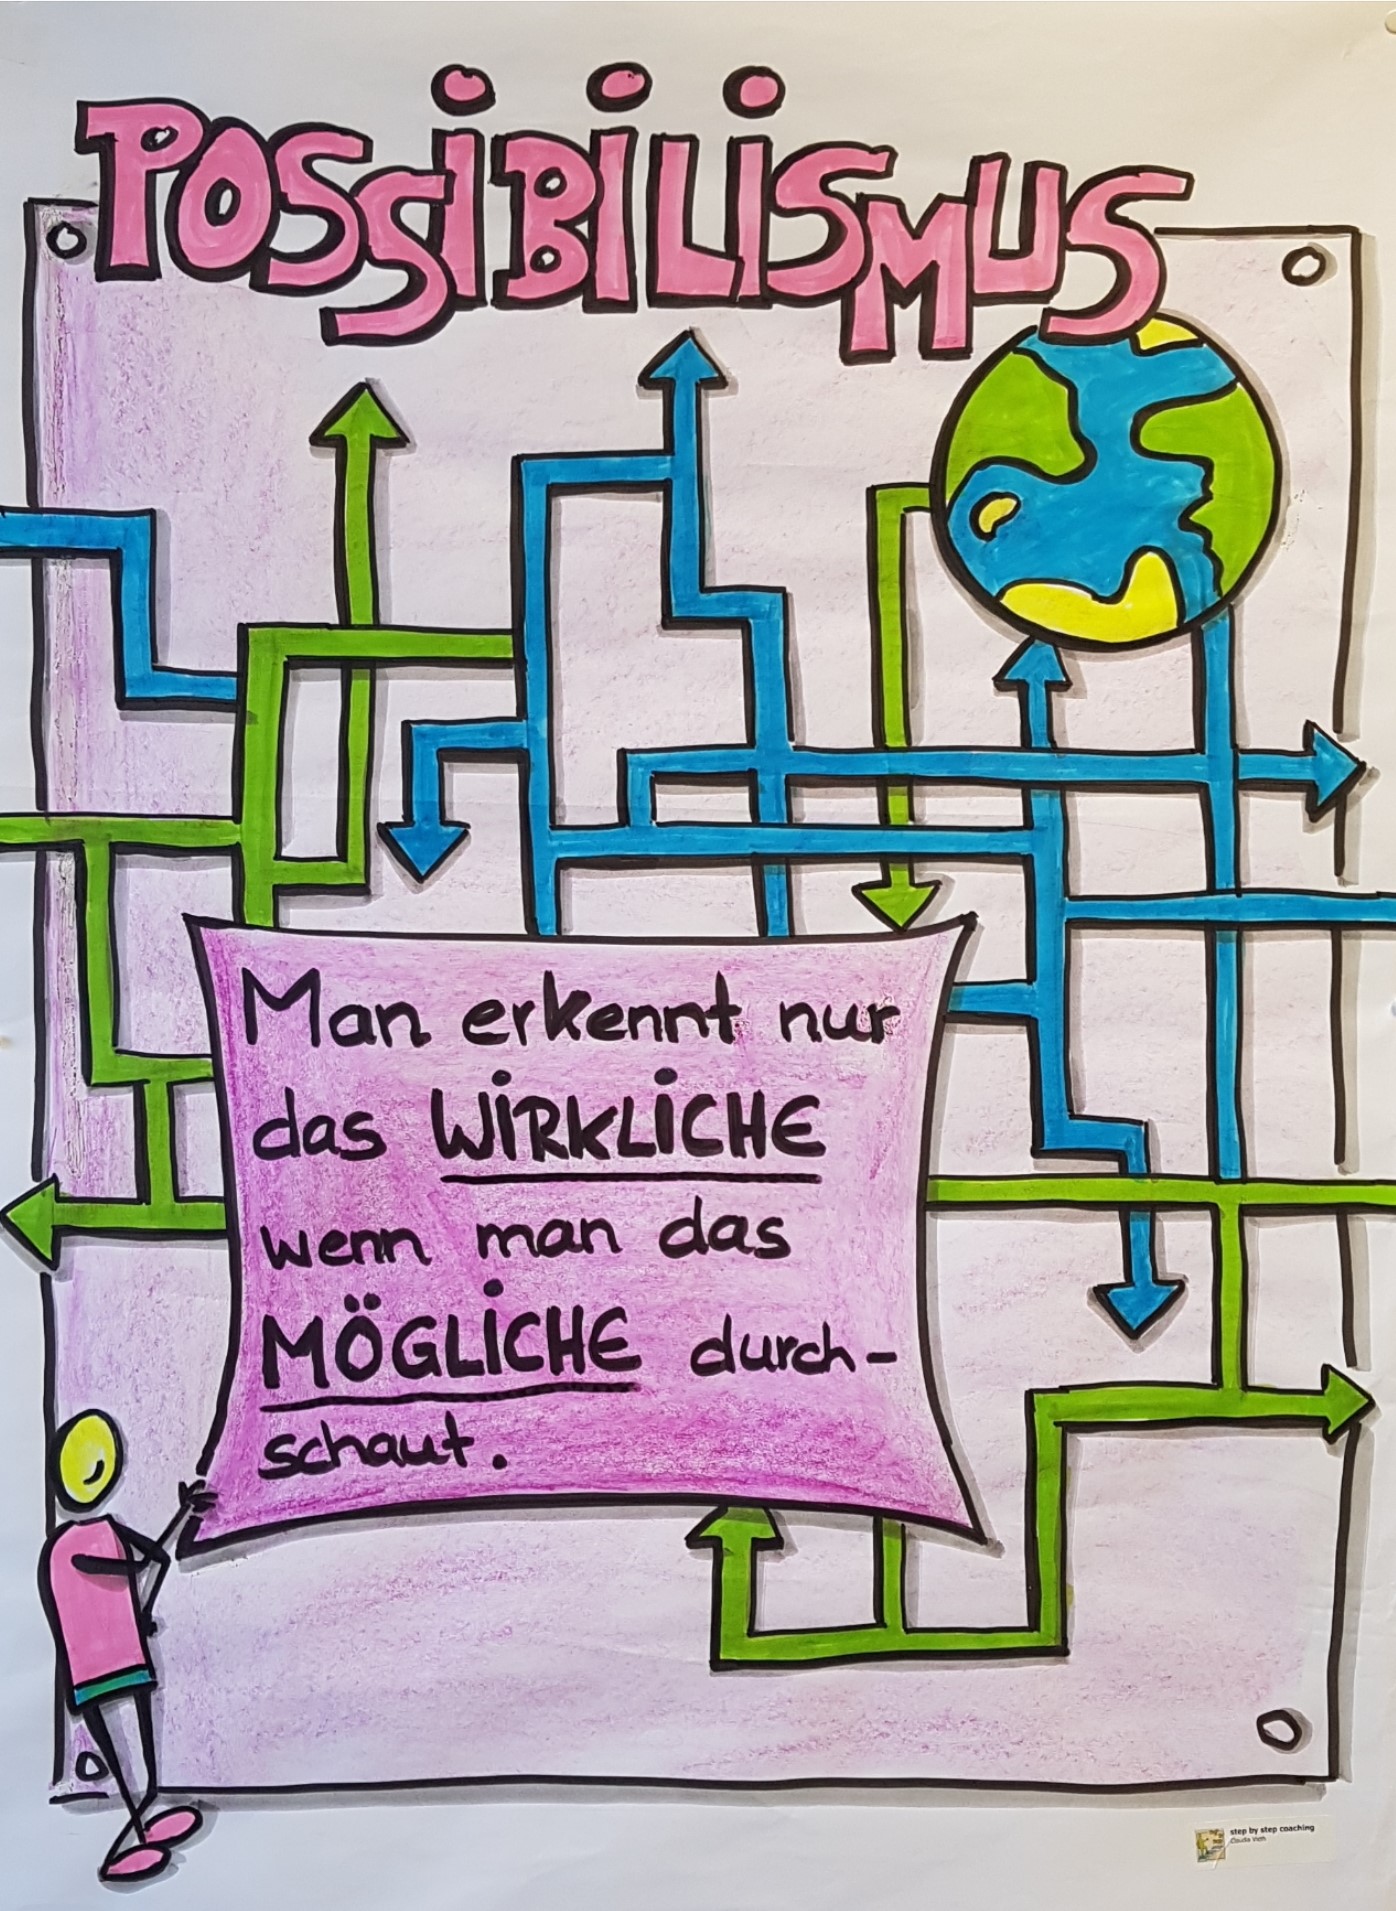 POSSIBILISMUS
Man erkennt nur
das WIRKLICHE
wenn man das
MÖGLICHE durch-
schaut.
step by step coaching